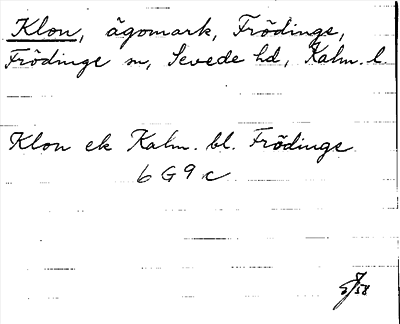 Klon, ägomark, Frödinge,
Frödinge sn, Sevede hd, Kalm. l.
Klon ek Kalm. bl. Frödinge
6 G 9 c
58